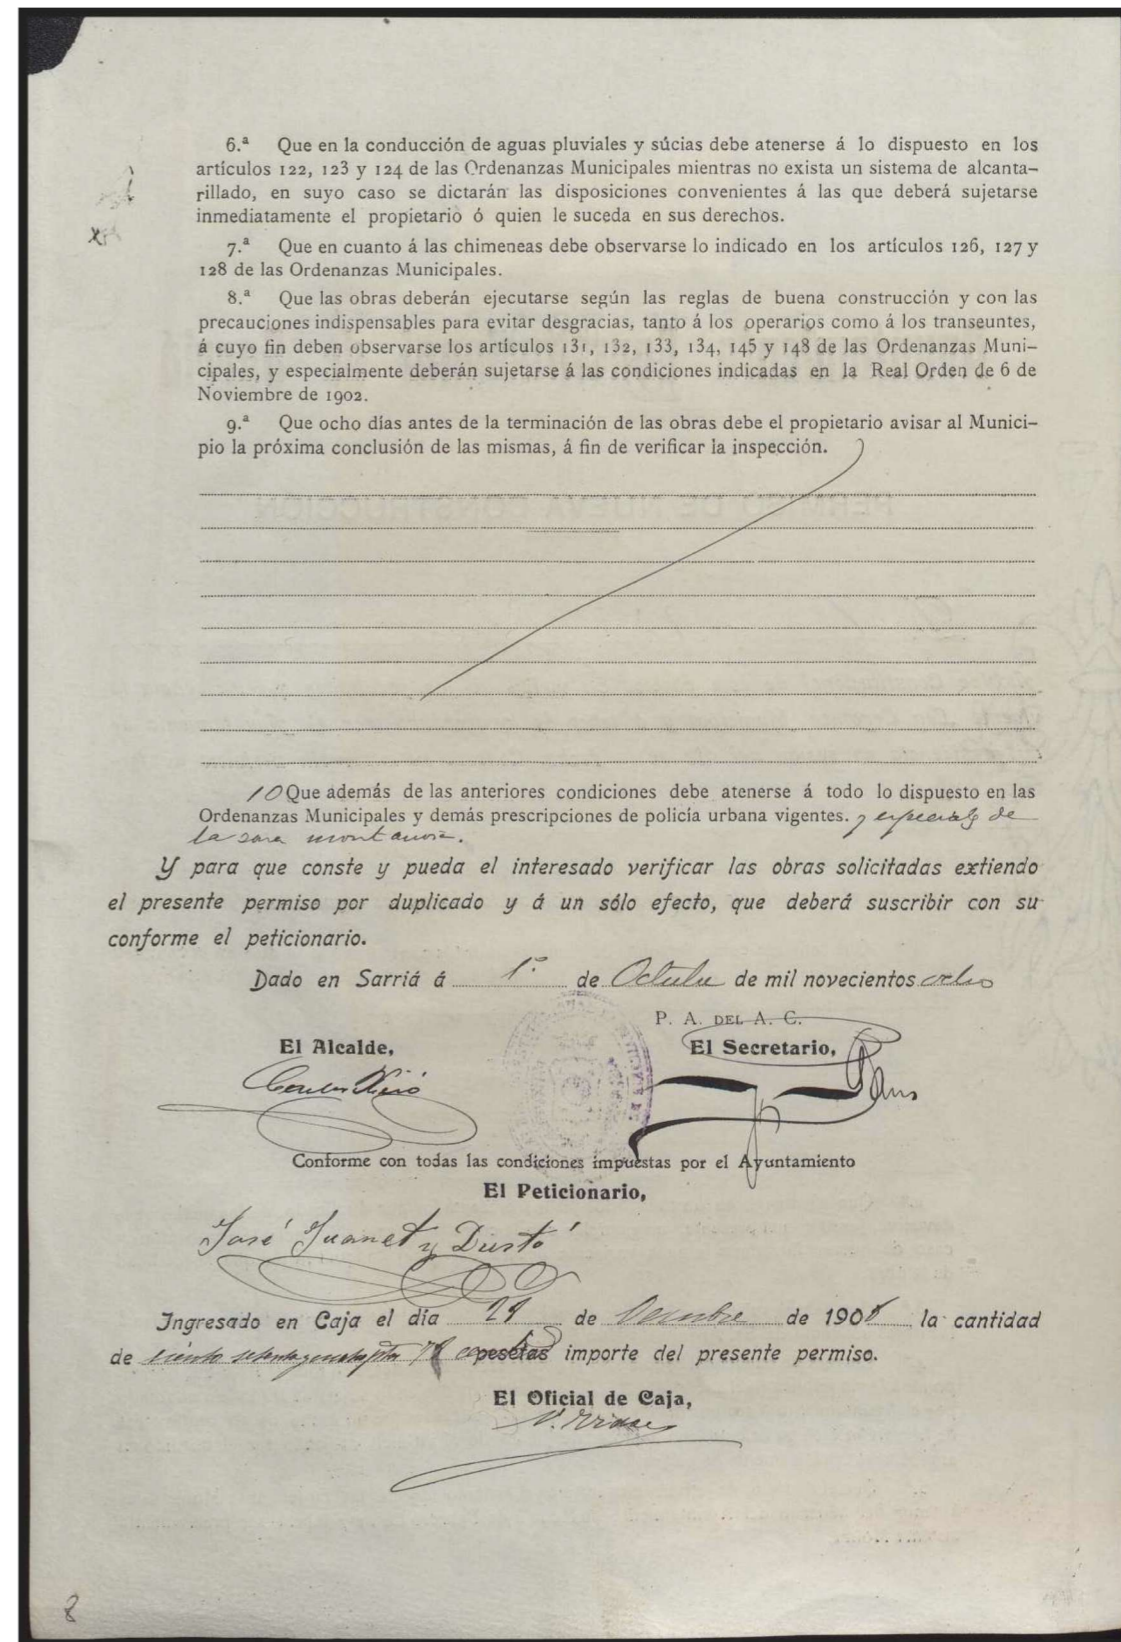 6.ª Que en la conducción de aguas pluviales y súcias debe atenerse á lo dispuesto en los
artículos 122, 123 y 124 de las Ordenanzas Municipales mientras no exista un sistema de alcanta-
rillado, en suyo caso se dictarán las disposiciones convenientes á las que deberá sujetarse
inmediatamente el propietario ó quien le suceda en sus derechos.
7.ª Que en cuanto á las chimeneas debe observarse lo indicado en los artículos 126, 127 y
128 de las Ordenanzas Municipales.
8.ª Que las obras deberán ejecutarse según las reglas de buena construcción y con las
precauciones indispensables para evitar desgracias, tanto á los operarios como á los transeuntes,
á cuyo fin deben observarse los artículos 131, 132, 133, 134, 145 y 148 de las Ordenanzas Muni-
cipales, y especialmente deberán sujetarse á las condiciones indicadas en la Real Orden de 6 de
Noviembre de 1902.
9.ª Que ocho días antes de la terminación de las obras debe el propietario avisar al Munici-
pio la próxima conclusión de las mismas, á fin de verificar la inspección.
10 Que además de las anteriores condiciones debe atenerse á todo lo dispuesto en las
Ordenanzas Municipales y demás prescripciones de policía urbana vigentes. y de
la zona montañosa.
Y para que conste y pueda el interesado verificar las obras solicitadas extiendo
el presente permiso por duplicado y á un sólo efecto, que deberá suscribir con su
conforme el peticionario.
Dado en Sarriá á 1.º de Octubre de mil novecientos ocho
P. A. DEL A. C.
El Alcalde, El Secretario,
Conforme con todas las condiciones impuestas por el Ayuntamiento
El Peticionario,
José Juanet y Dustó
Ingresado en Caja el día 29 de de 1908 la cantidad
de ciento pesetas importe del presente permiso.
El Oficial de Caja,
8